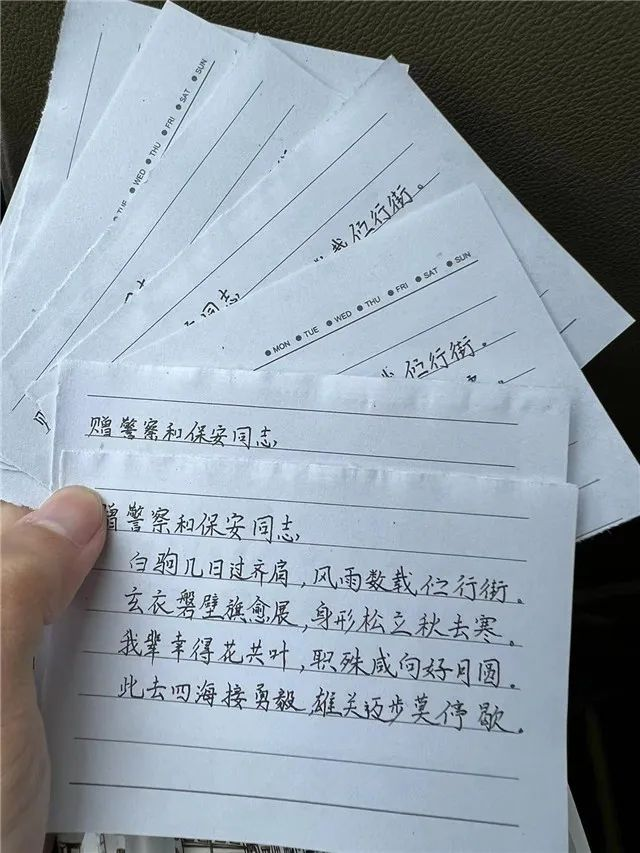 TUE WED THU FRI SAT SUN
伫行街。
同志
MON TUE WED THU FRI SAT SUN
伫行街。
赠警察和保安同志
赠警察和保安同志
白驹几日过齐肩,风雨数载伫行街。
玄衣磐壁旗愈展,身形松立秋去寒。
我辈幸得花共叶,职殊咸向好月圆。
此去四海接勇毅,雄关迈步莫停歇。